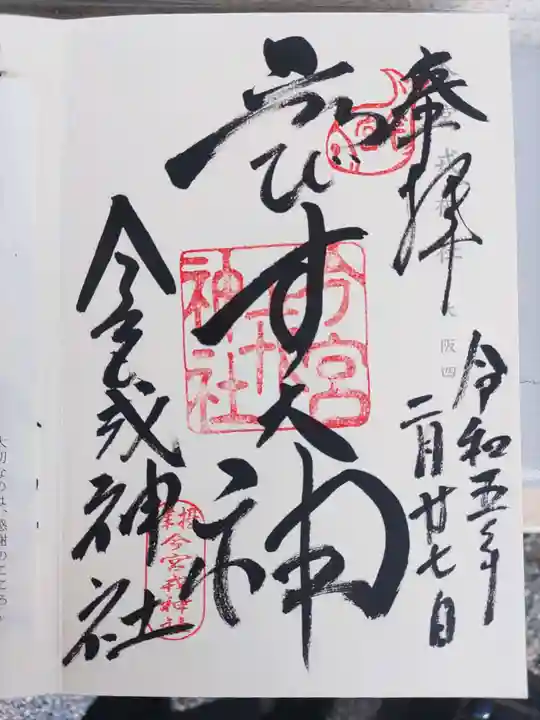 奉拝
令和五年
二月廿七日
ゑびす大神
今宮戎神社
今宮
戎
神社
今宮戎神社
阪四
大切なのは、感謝のこころ